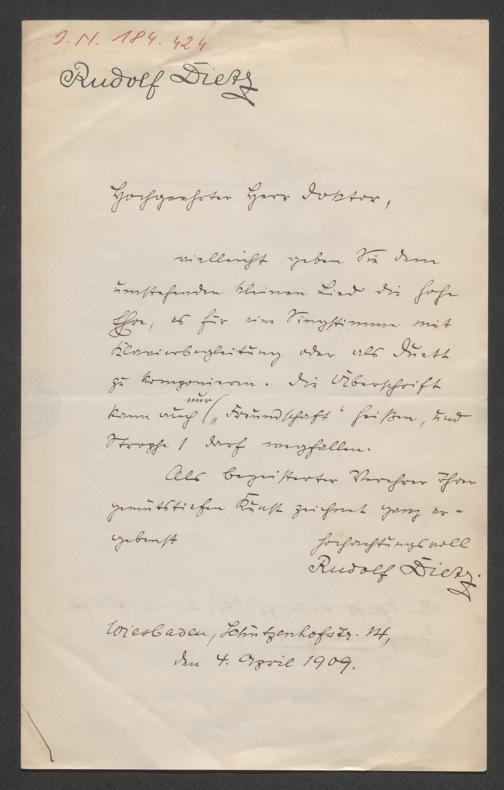 J. N. 184.424
Rudolf Dietz
Hochgeehrter Herr Doktor,
vielleicht geben Sie dem
umstehenden kleinen Lied die hohe
Ehre, es für eine Singstimme mit
Klavierbegleitung oder als Duett
zu komponieren. Die Überschrift
nur
kann auch („Freundschaft“ heißen, und
Strophe 1 darf wegfallen.
Als begeisterter Verehrer Ihrer
gemütstiefen Kunst zeichnet ganz er-
gebenst
hochachtungsvoll
Rudolf Dietz.
Wiesbaden, Schützenhofstr. 14,
den 4. April 1909.